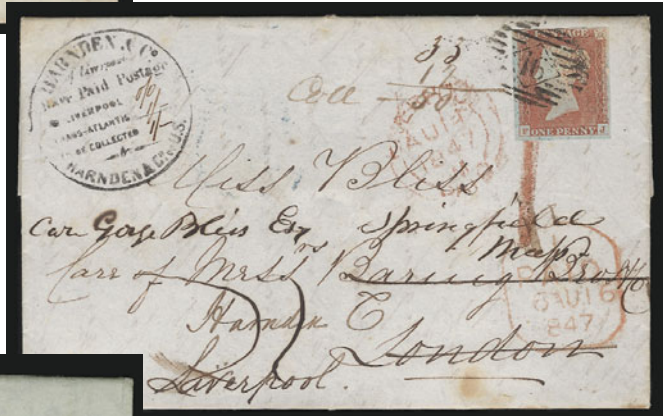 HARNDEN & Co.
Liverpool
Have Paid Postage
LIVERPOOL
TRANS-ATLANTIC
TO BE COLLECTED
HARNDEN & Co. U.S.
Coll
POSTAGE
ONE PENNY
AU
1847
Miss Bliss
Care George Bliss Esq Springfield
Mass
Care of Messrs Baring Bro & Co
Harnden & C
London
Liverpool.
PAID
AU 6
1847